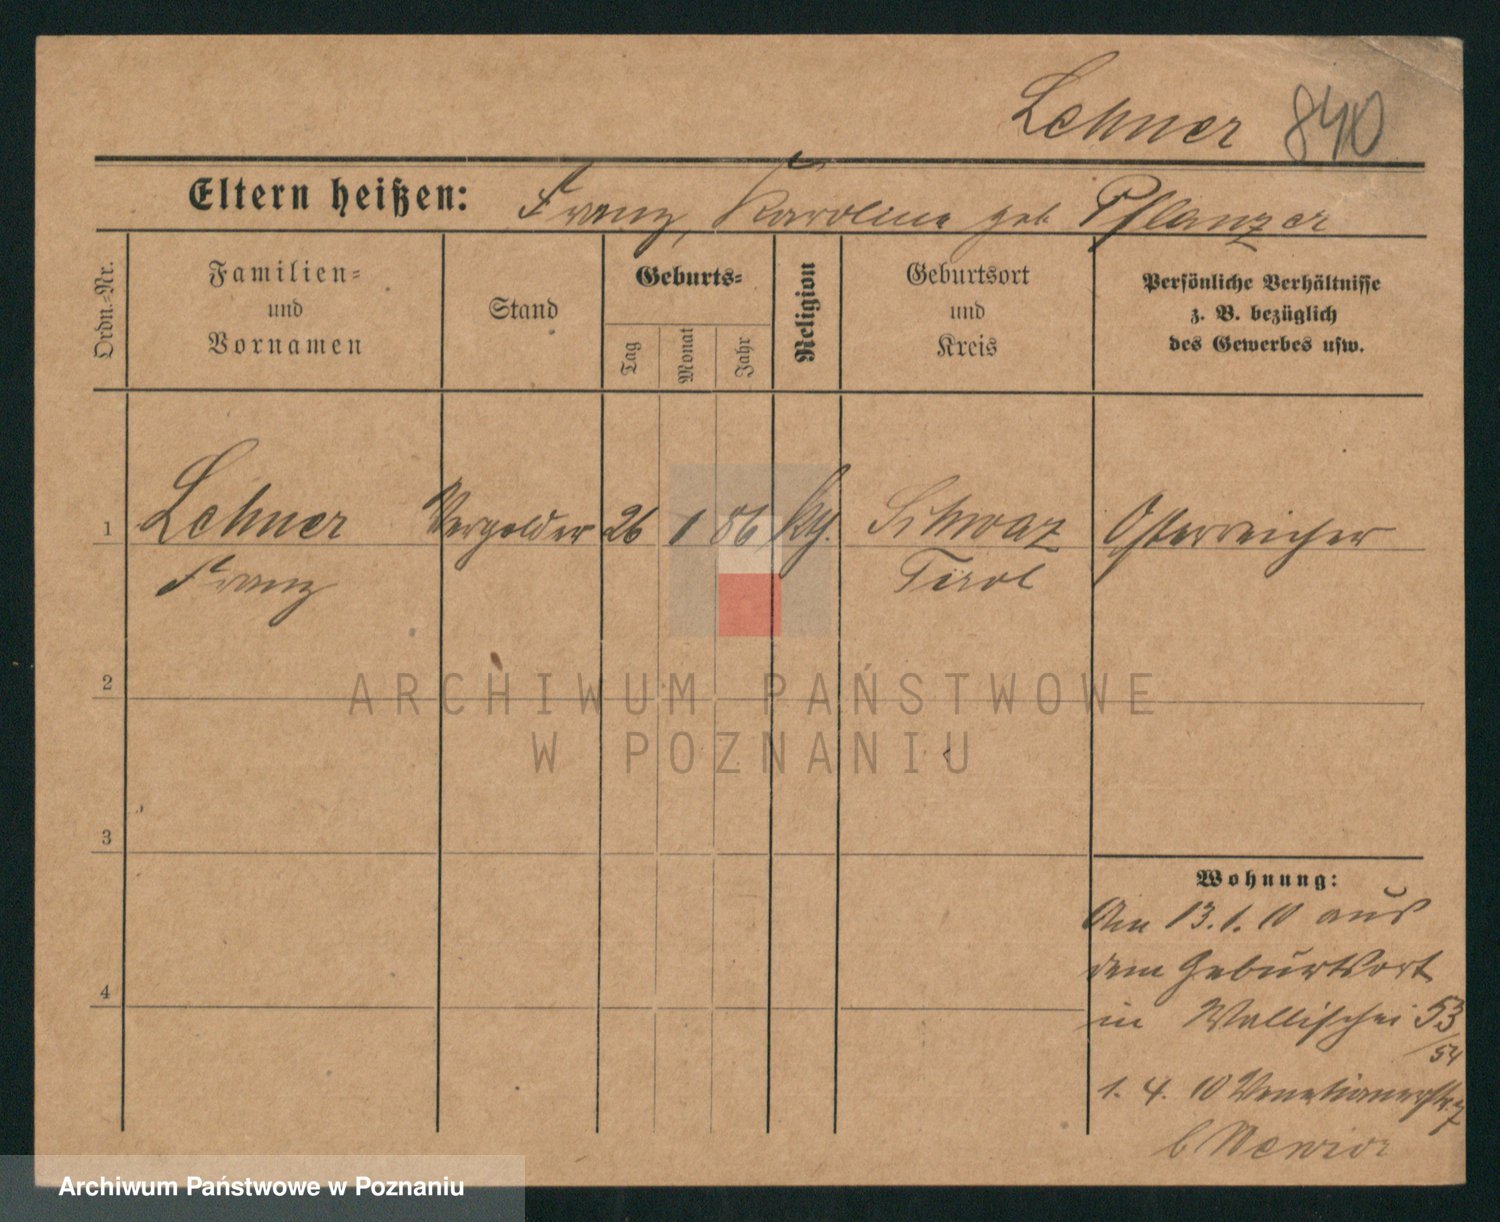 Lehner 840
Eltern heißen: Franz, Karoline geb Pflanzer
Ordn.-Nr.
Familien-
und
Vornamen
Stand
Geburts-
Tag
Monat
Jahr
Religion
Geburtsort
und
Kreis
Persönliche Verhältnisse
z. B. bezüglich
des Gewerbes usw.
1 Lehner Vergolder 26 1 86 kth. Schwaz Österreicher
Franz Tirol
2
ARCHIWUM PAŃSTWOWE
W POZNANIU
3
Wohnung:
Am 13.1.10 aus
dem Geburtsort
4
in Wallischei 53/54
1. 4. 10 Venetianerstr 7
b
Archiwum Państwowe w Poznaniu